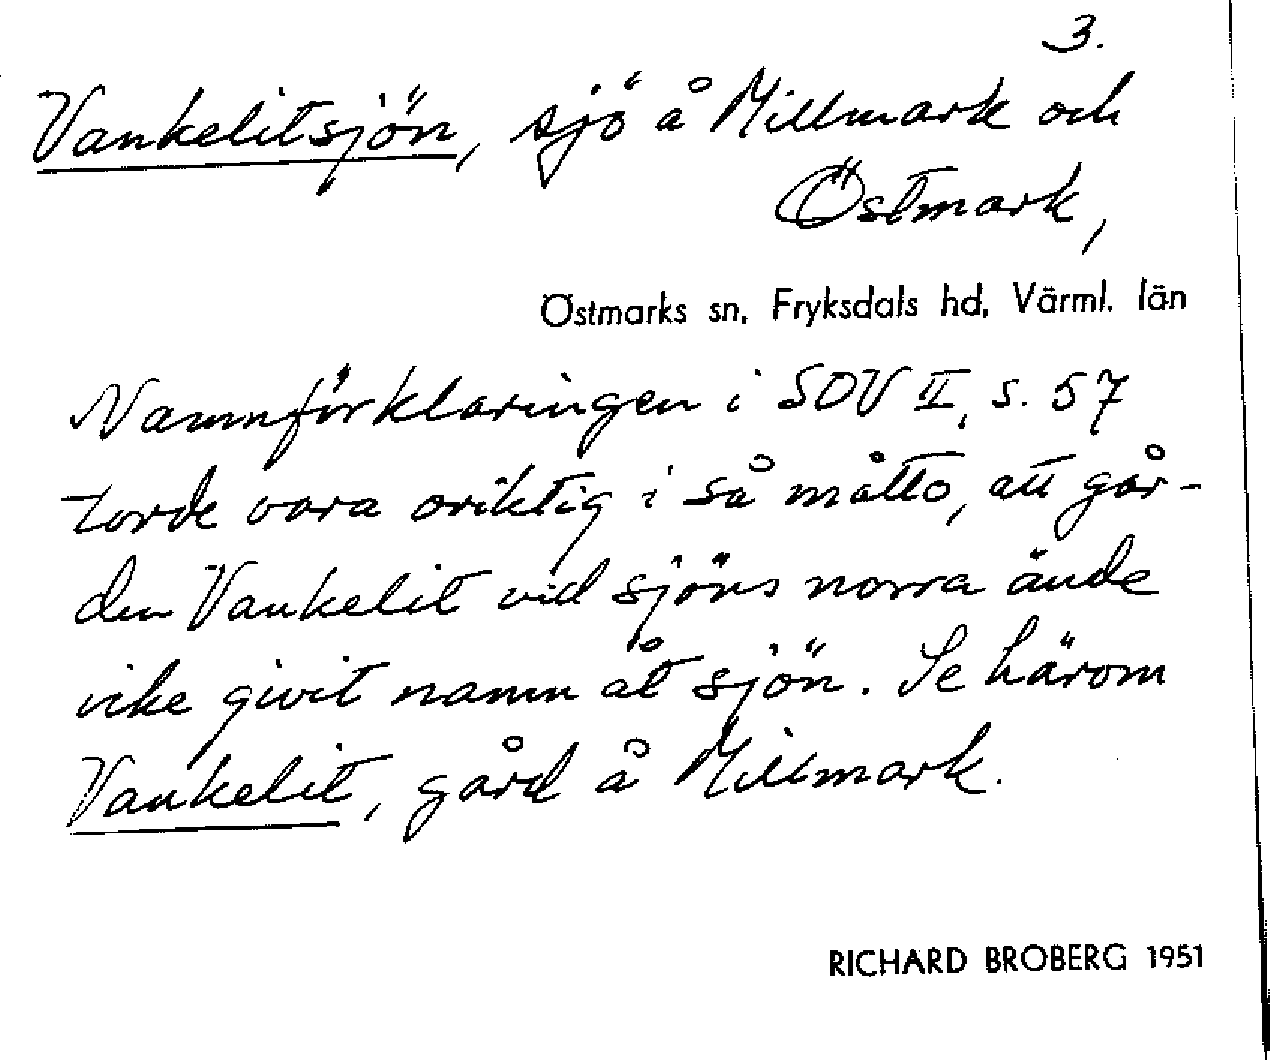 3.
Vankelitsjön, sjö å Millmark och
Östmark,
Östmarks sn, Fryksdals hd, Värml. län
Namnförklaringen i SOV II, s. 57
torde vara oriktig i så måtto, att går-
den Vankelit vid sjöns norra ände
icke givit namn åt sjön. Se härom
Vankelit, gård å Millmark.
RICHARD BROBERG 1951